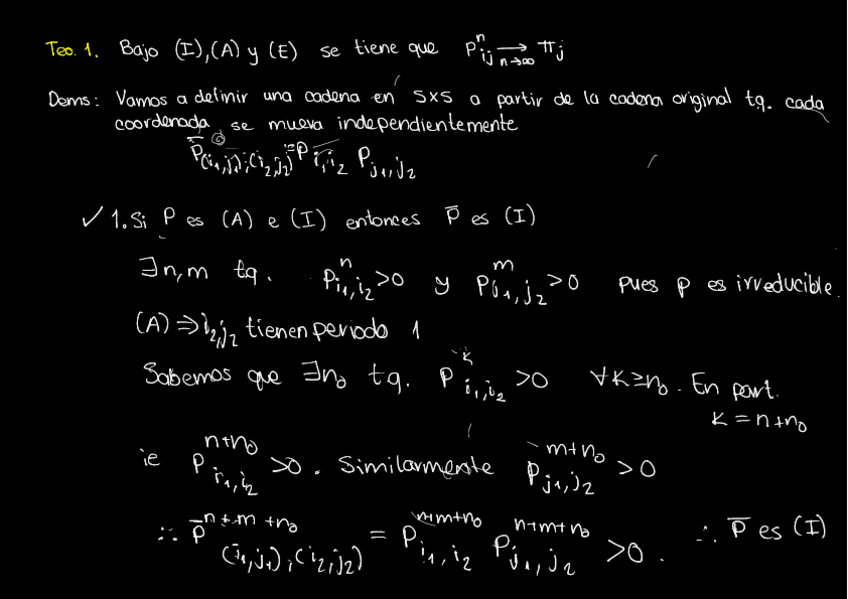 Teo. 1. Bajo (I),(A) y (E) se tiene que P^n_{ij} →_{n→∞} π_j
Dems: Vamos a definir una cadena en S×S a partir de la cadena original t.q. cada
coordenada se mueva independientemente
P̄_{(i_1,j_1),(i_2,j_2)} = P_{i_1,i_2} P_{j_1,j_2}
✓ 1. Si P es (A) e (I) entonces P̄ es (I)
∃n,m t.q. P^n_{i_1,i_2} >0 y P^m_{j_1,j_2} >0 pues p es irreducible.
(A) ⇒ i_2,j_2 tienen periodo 1
Sabemos que ∃n_0 t.q. P^k_{i_1,i_2} >0 ∀k≥n_0. En part.
k = n+n_0
ie P^{n+n_0}_{i_1,i_2} >0. Similarmente P^{m+n_0}_{j_1,j_2} >0
∴ P̄^{n+m+n_0}_{(i_1,j_1),(i_2,j_2)} = P^{n+m+n_0}_{i_1,i_2} P^{n+m+n_0}_{j_1,j_2} >0. ∴ P̄ es (I)